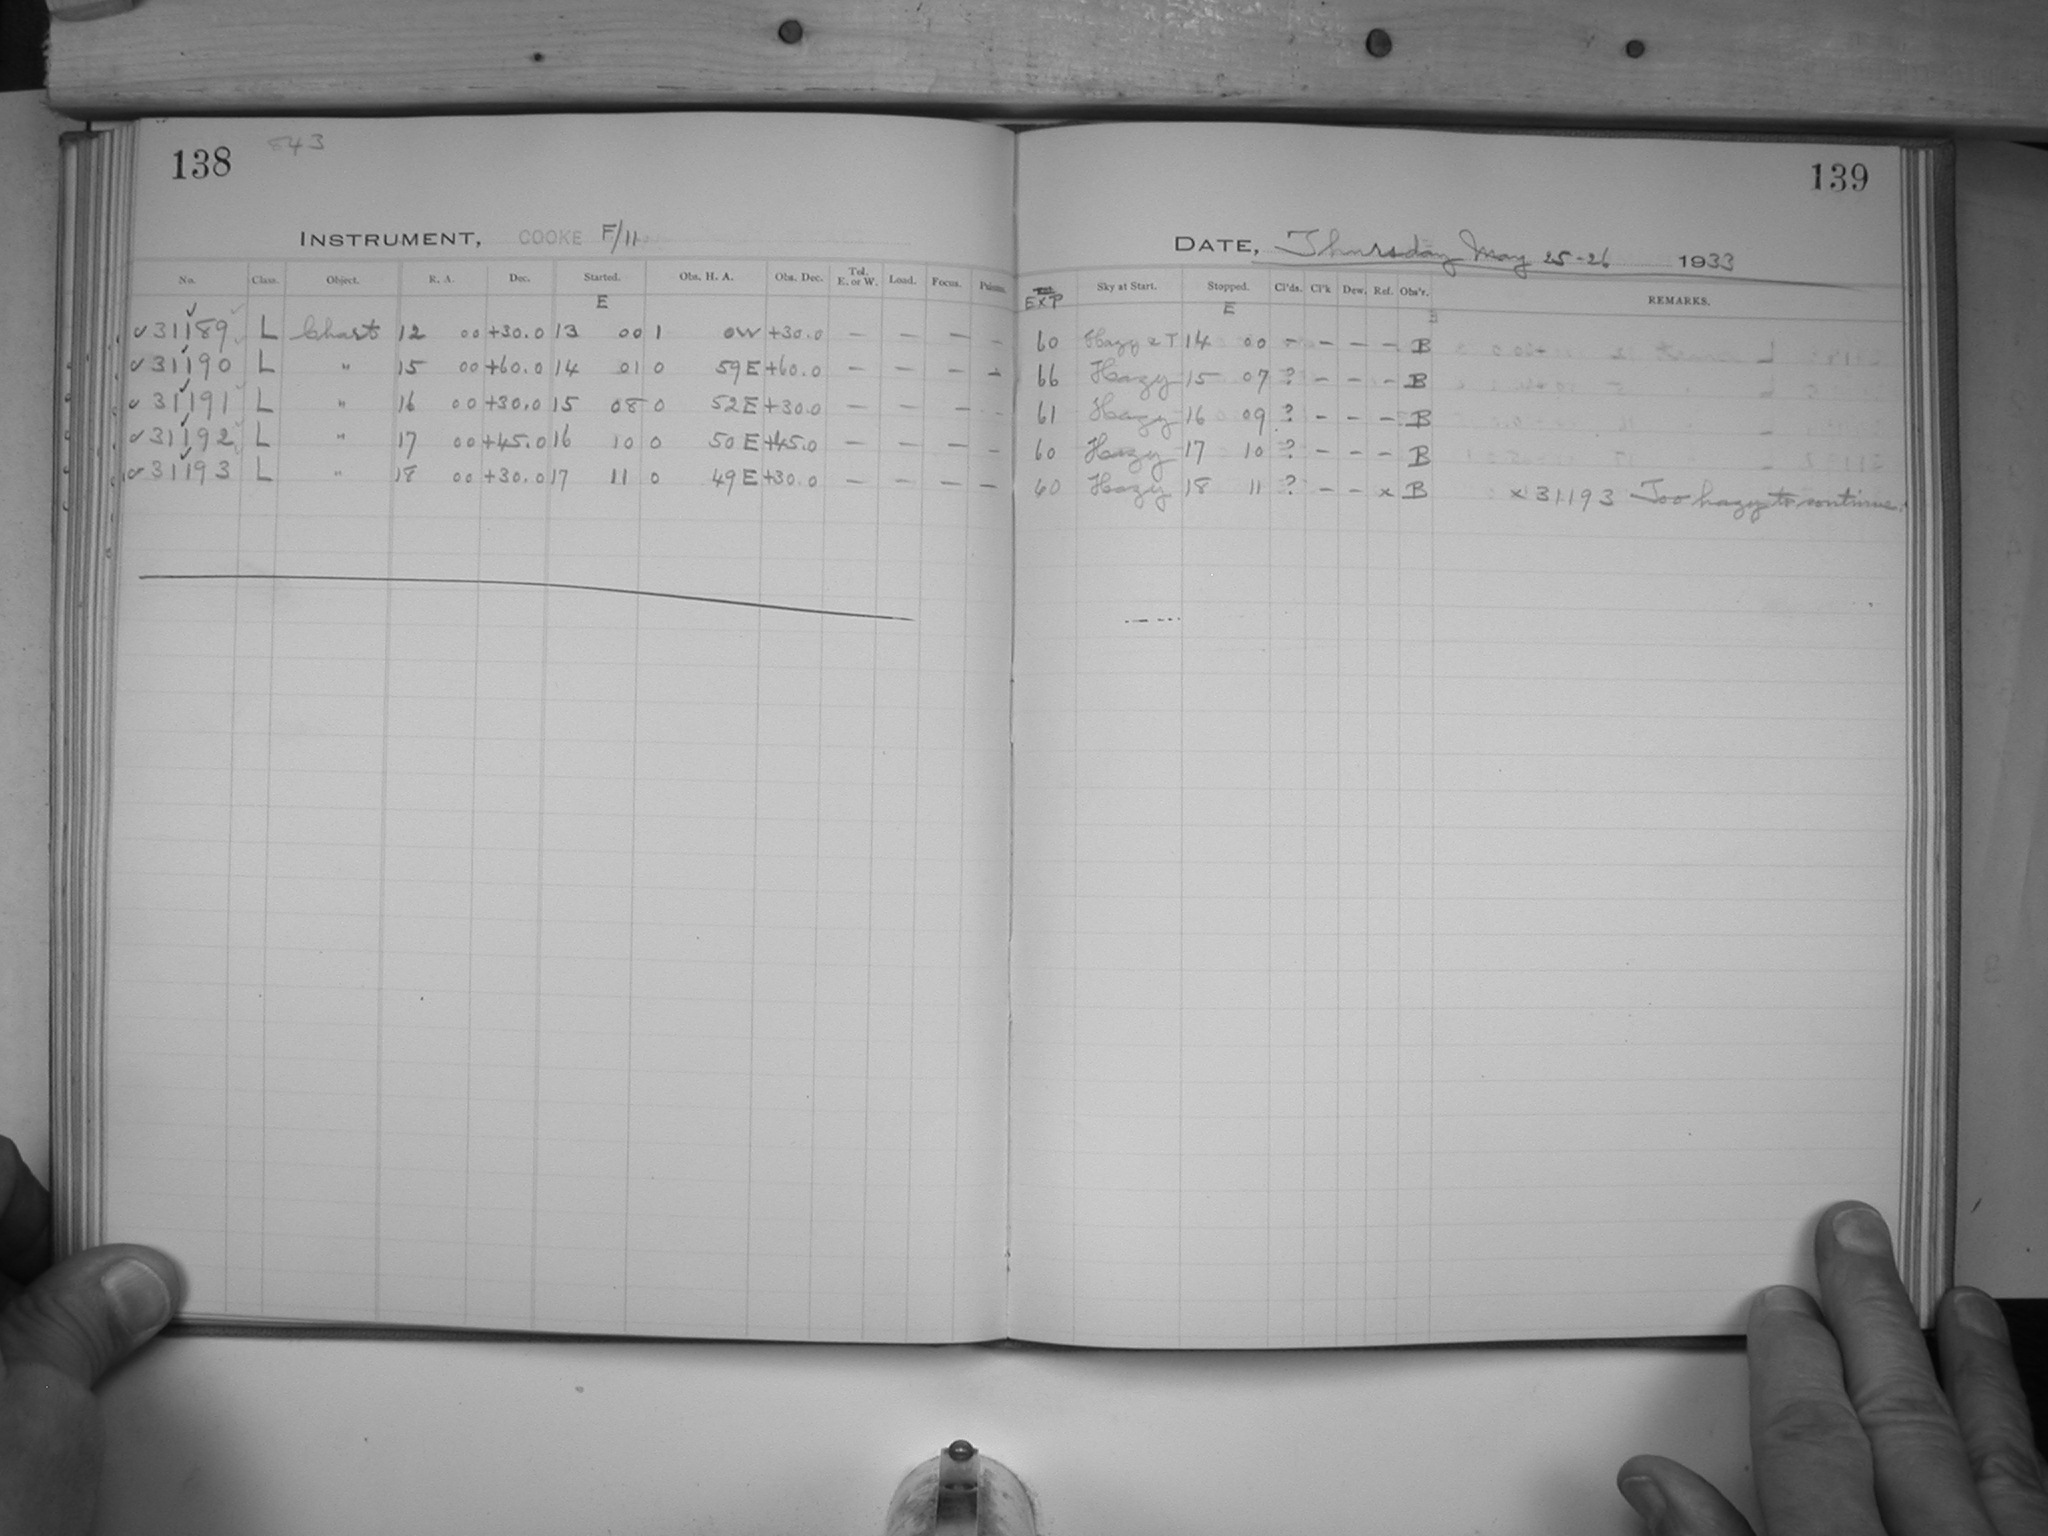 138 843
INSTRUMENT, COOKE F/11
No. Class. Object. R. A. Dec. Started. Obs. H. A. Obs. Dec. Tel. E. or W. Load. Focus.
E
31189 L Chart 12 00 +30.0 13 00 1 0W +30.0 — — — -
31190 L " 15 00 +60.0 14 01 0 59 E +60.0 — — — -
31191 L " 16 00 +30.0 15 08 0 52 E +30.0 — — — -
31192 L " 17 00 +45.0 16 10 0 50 E +45.0 — — — -
31193 L " 18 00 +30.0 17 11 0 49 E +30.0 — — — —
139
DATE, Thursday May 25-26 1933
EXP Sky at Start. Stopped. Cl'ds. Cl'k Dew. Ref. Obs'r. REMARKS.
E
60 Hazy & T 14 00 - - - - B
66 Hazy 15 07 ? - - - B
61 Hazy 16 09 ? - - - B
60 Hazy 17 10 ? - - - B
60 Hazy 18 11 ? - - x B x 31193 Too hazy to continue.